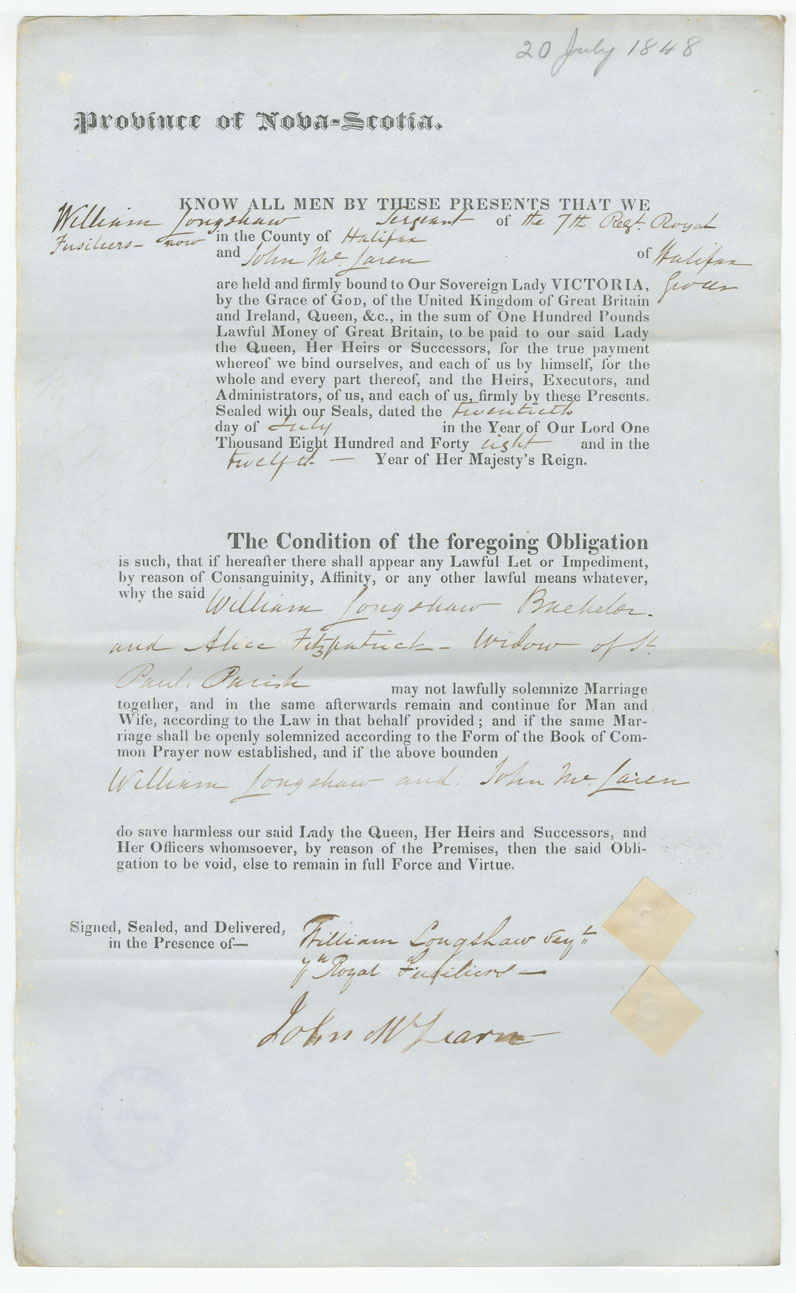 20 July 1848
Province of Nova-Scotia.
KNOW ALL MEN BY THESE PRESENTS THAT WE
William Longshaw Sergeant of the 7th Regt. Royal
Fusiliers – now in the County of Halifax
and John Mc Laren of Halifax
are held and firmly bound to Our Sovereign Lady VICTORIA,
by the Grace of GOD, of the United Kingdom of Great Britain
and Ireland, Queen, &c., in the sum of One Hundred Pounds
Lawful Money of Great Britain, to be paid to our said Lady
the Queen, Her Heirs or Successors, for the true payment
whereof we bind ourselves, and each of us by himself, for the
whole and every part thereof, and the Heirs, Executors, and
Administrators, of us, and each of us, firmly by these Presents.
Sealed with our Seals, dated the twentieth
day of July in the Year of Our Lord One
Thousand Eight Hundred and Forty eight and in the
twelfth — Year of Her Majesty's Reign.
The Condition of the foregoing Obligation
is such, that if hereafter there shall appear any Lawful Let or Impediment,
by reason of Consanguinity, Affinity, or any other lawful means whatever,
why the said William Longshaw Bachelor.
and Alice Fitzpatrick – Widow of St
Paul's Parish may not lawfully solemnize Marriage
together, and in the same afterwards remain and continue for Man and
Wife, according to the Law in that behalf provided; and if the same Mar-
riage shall be openly solemnized according to the Form of the Book of Com-
mon Prayer now established, and if the above bounden
William Longshaw and John Mc Laren
do save harmless our said Lady the Queen, Her Heirs and Successors, and
Her Officers whomsoever, by reason of the Premises, then the said Obli-
gation to be void, else to remain in full Force and Virtue.
Signed, Sealed, and Delivered,
in the Presence of—
William Longshaw Sergt
7th Royal Fusiliers —
John McLearn